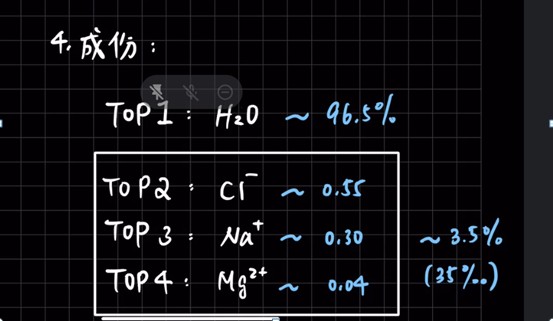 4. 成份：
TOP 1： H₂O ~ 96.5%
TOP 2： Cl⁻ ~ 0.55
TOP 3： Na⁺ ~ 0.30 ~ 3.5%
TOP 4： Mg²⁺ ~ 0.04 (35‰)